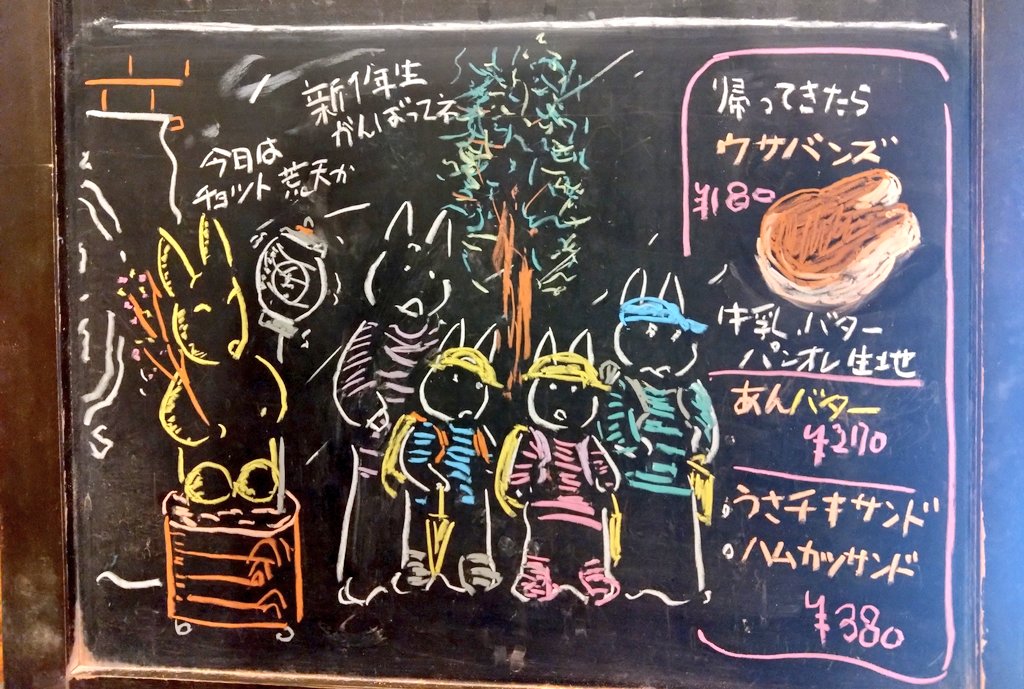 新1年生
がんばってネ
今日は
チョット荒天か
帰ってきたら
ウサバンズ
¥180
牛乳、バター
パンオレ生地
あんバター
¥270
うさチキサンド
ハムカツサンド
¥380